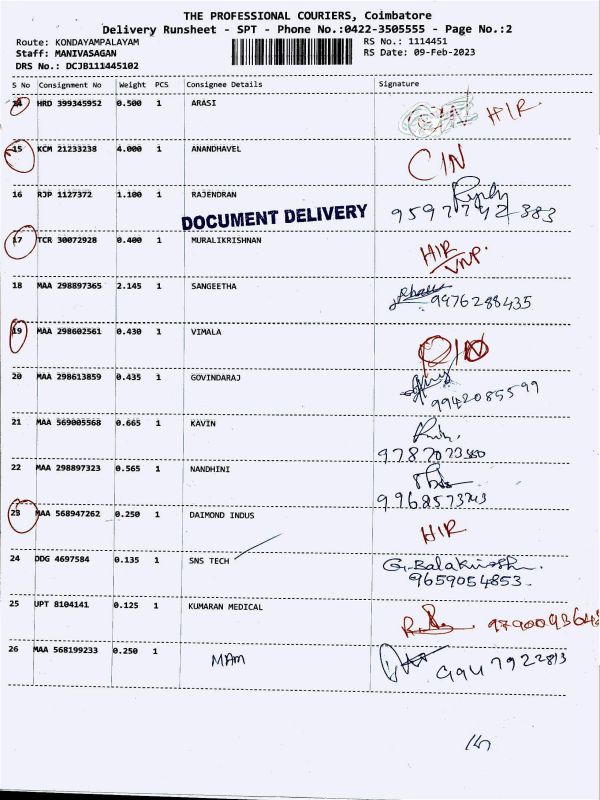 THE PROFESSIONAL COURIERS, Coimbatore
Delivery Runsheet - SPT - Phone No.:0422-3505555 - Page No.:2
Route: KONDAYAMPALAYAM RS No.: 1114451
Staff: MANIVASAGAN RS Date: 09-Feb-2023
DRS No.: DCJB111445102
S No Consignment No Weight PCS Consignee Details Signature
14 HRD 399345952 0.500 1 ARASI HIR
15 KCM 21233238 4.000 1 ANANDHAVEL CIN
16 RJP 1127372 1.100 1 RAJENDRAN
DOCUMENT DELIVERY 9597742383
17 TCR 30072928 0.400 1 MURALIKRISHNAN HIR
VNP.
18 MAA 298897365 2.145 1 SANGEETHA 9476288435
19 MAA 298602561 0.430 1 VIMALA
20 MAA 298613859 0.435 1 GOVINDARAJ
9942085599
21 MAA 569005568 0.665 1 KAVIN
22 MAA 298897323 0.565 1 NANDHINI
23 MAA 568947262 0.250 1 DAIMOND INDUS HIR
24 DDG 4697584 0.135 1 SNS TECH
9659054853.
25 UPT 8104141 0.125 1 KUMARAN MEDICAL
26 MAA 568199233 0.250 1 MAM